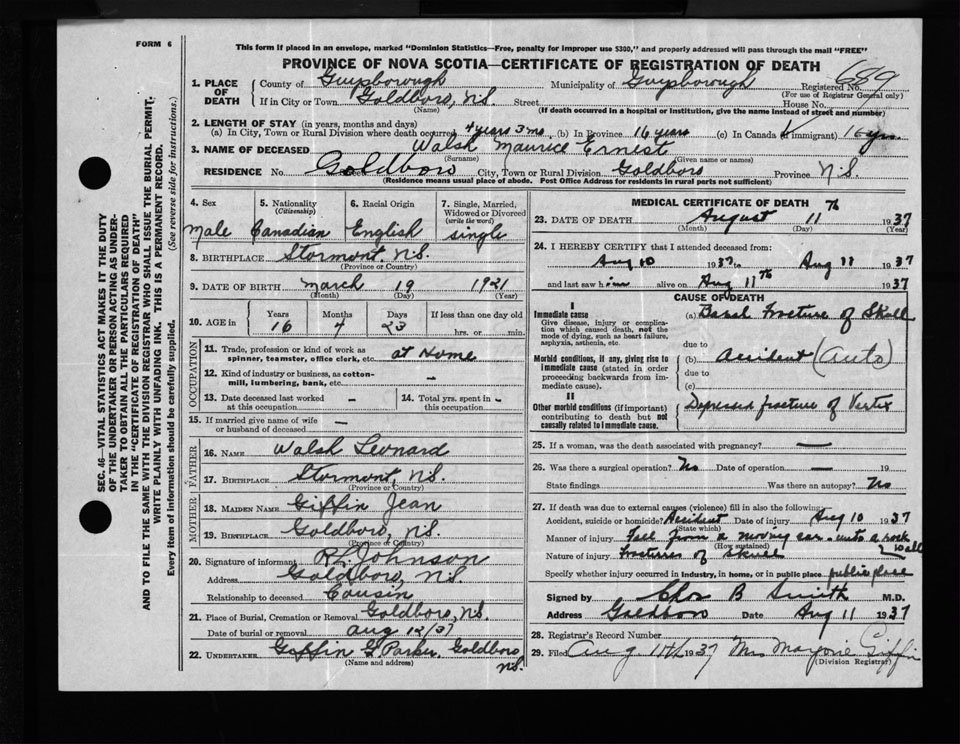 FORM 6
This form if placed in an envelope, marked "Dominion Statistics—Free, penalty for improper use $300," and properly addressed will pass through the mail "FREE"
PROVINCE OF NOVA SCOTIA—CERTIFICATE OF REGISTRATION OF DEATH
SEC. 46—VITAL STATISTICS ACT MAKES IT THE DUTY
OF THE UNDERTAKER OR PERSON ACTING AS UNDER-
TAKER TO OBTAIN ALL THE PARTICULARS REQUIRED
IN THE "CERTIFICATE OF REGISTRATION OF DEATH"
AND TO FILE THE SAME WITH THE DIVISION REGISTRAR WHO SHALL ISSUE THE BURIAL PERMIT.
WRITE PLAINLY WITH UNFADING INK. THIS IS A PERMANENT RECORD.
Every item of information should be carefully supplied. (See reverse side for instructions.)
1. PLACE OF DEATH County of Guysborough Municipality of Guysborough Registered No. 689
(For use of Registrar General only)
If in City or Town Goldboro, N.S. Street House No.
(Name) (If death occurred in a hospital or institution, give the name instead of street and number)
2. LENGTH OF STAY (in years, months and days)
(a) In City, Town or Rural Division where death occurred 4 years 3 mo. (b) In Province 16 years (c) In Canada (if immigrant) 16 yrs.
3. NAME OF DECEASED Walsh Maurice Ernest
(Surname) (Given name or names)
RESIDENCE No. Goldboro City, Town or Rural Division Goldboro Province N.S.
(Residence means usual place of abode. Post Office Address for residents in rural parts not sufficient)
4. Sex 5. Nationality (Citizenship) 6. Racial Origin 7. Single, Married, Widowed or Divorced (write the word)
Male Canadian English single
8. BIRTHPLACE Stormont, N.S.
(Province or Country)
9. DATE OF BIRTH March 19 1921
(Month) (Day) (Year)
10. AGE in Years Months Days If less than one day old
16 4 23 hrs. or min.
OCCUPATION
11. Trade, profession or kind of work as spinner, teamster, office clerk, etc. at Home
12. Kind of industry or business, as cotton-mill, lumbering, bank, etc. —
13. Date deceased last worked at this occupation — 14. Total yrs. spent in this occupation —
15. If married give name of wife or husband of deceased —
FATHER
16. NAME Walsh Leonard
17. BIRTHPLACE Stormont, N.S.
(Province or Country)
MOTHER
18. MAIDEN NAME Giffin Jean
19. BIRTHPLACE Goldboro, N.S.
(Province or Country)
20. Signature of informant R.L. Johnson
Address Goldboro, N.S.
Relationship to deceased Cousin
21. Place of Burial, Cremation or Removal Goldboro, N.S.
Date of burial or removal Aug 12/37
22. UNDERTAKER Giffin & Parker, Goldboro N.S.
(Name and address)
MEDICAL CERTIFICATE OF DEATH
23. DATE OF DEATH August 11th 1937
(Month) (Day) (Year)
24. I HEREBY CERTIFY that I attended deceased from:
Aug 10 1937 to Aug 11 1937
and last saw him alive on Aug 11th 1937
CAUSE OF DEATH
I
Immediate cause (a) Basal Fracture of Skull
Give disease, injury or complication which caused death, not the mode of dying, such as heart failure, asphyxia, asthenia, etc.
due to
Morbid conditions, if any, giving rise to immediate cause (stated in order proceeding backwards from immediate cause). (b) Accident (Auto)
due to
(c)
II
Other morbid conditions (if important) contributing to death but not causally related to immediate cause. Depressed fracture of Vertex
25. If a woman, was the death associated with pregnancy? —
26. Was there a surgical operation? No Date of operation — 19
State findings Was there an autopsy? No
27. If death was due to external causes (violence) fill in also the following:
Accident, suicide or homicide? Accident Date of injury Aug 10 1937
(State which)
Manner of injury Fall from a moving car - unto a rock wall
(How sustained)
Nature of injury Fractures of Skull
Specify whether injury occurred in industry, in home, or in public place public place
Signed by Chas B Smith M.D.
Address Goldboro Date Aug 11 1937
28. Registrar's Record Number
29. Filed Aug. 11th 1937 Mrs Marjorie Giffin
(Division Registrar)